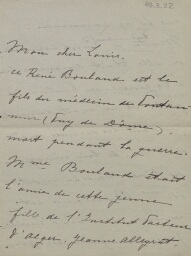 Mon cher Louis,
ce René Bouland est le
fils du médecin de
(Puy de Dôme)
mort pendant la guerre.
Mme Bouland était
l'amie de cette jeune
fille de l'Institut Pasteur
d'Alger, Jeanne Allegret